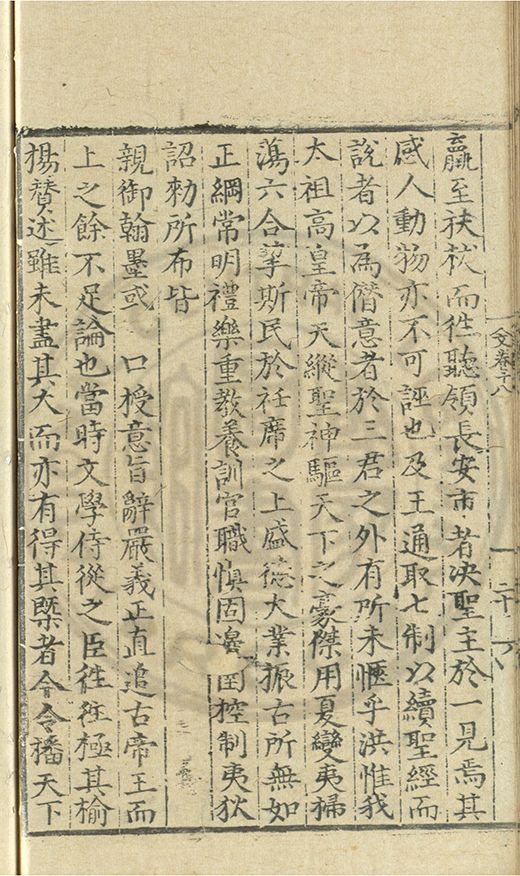 羸至扶杖而徃聽領長安市者决聖主於一見焉其
感人動物亦不可誣也及王通取七制以續聖經而
說者以爲僭意者於三君之外有所未愜乎洪惟我
太祖高皇帝天縱聖神驅天下之豪傑用夏變夷掃
蕩六合挈斯民於袵席之上盛德大業振古所無如
正綱常明禮樂重教養訓官職愼固邊圉控制夷狄
詔勑所布皆
親御翰墨或 口授意旨辭嚴義正直追古帝王而
上之餘不足論也當時文學侍從之臣徃徃極其揄
揚贊述雖未盡其大而亦有得其槩者今令播天下
文卷二十八